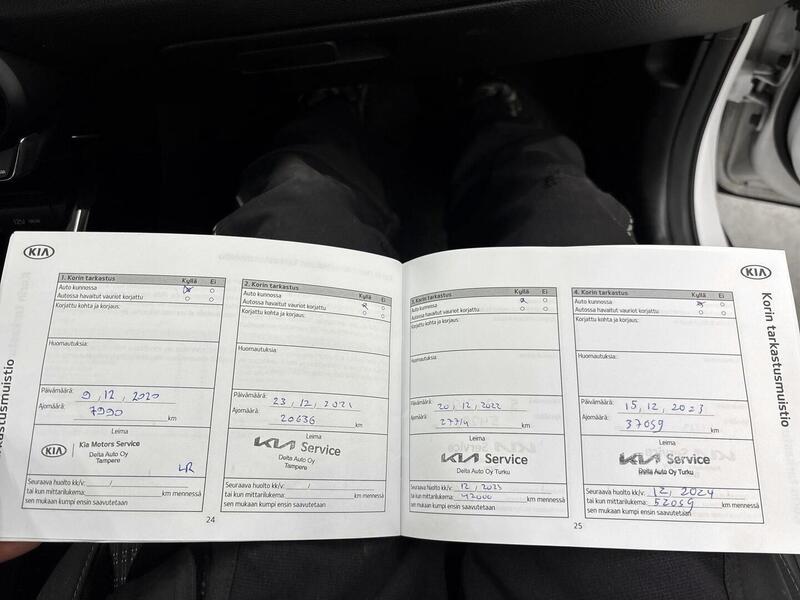 KIA
1. Korin tarkastus Kyllä Ei
Auto kunnossa
Autossa havaitut vauriot korjattu
Korjattu kohta ja korjaus:
Huomautuksia:
Päivämäärä: 9, 12, 2020
Ajomäärä: 7990 km
Leima
KIA Kia Motors Service
Delta Auto Oy
Tampere
Seuraava huolto kk/v: /
tai kun mittarilukema: km mennessä
sen mukaan kumpi ensin saavutetaan
2. Korin tarkastus Kyllä Ei
Auto kunnossa
Autossa havaitut vauriot korjattu
Korjattu kohta ja korjaus:
Huomautuksia:
Päivämäärä: 23, 12, 2021
Ajomäärä: 20636 km
Leima
KIA Service
Delta Auto Oy
Tampere
Seuraava huolto kk/v: /
tai kun mittarilukema: km mennessä
sen mukaan kumpi ensin saavutetaan
24
KIA
Korin tarkastusmuistio
3. Korin tarkastus Kyllä Ei
Auto kunnossa
Autossa havaitut vauriot korjattu
Korjattu kohta ja korjaus:
Huomautuksia:
Päivämäärä: 20, 12, 2022
Ajomäärä: 27714 km
Leima
KIA Service
Delta Auto Oy Turku
Seuraava huolto kk/v: 12, 2023
tai kun mittarilukema: 42000 km mennessä
sen mukaan kumpi ensin saavutetaan
4. Korin tarkastus Kyllä Ei
Auto kunnossa
Autossa havaitut vauriot korjattu
Korjattu kohta ja korjaus:
Huomautuksia:
Päivämäärä: 15, 12, 2023
Ajomäärä: 37059 km
Leima
KIA Service
Delta Auto Oy Turku
Seuraava huolto kk/v: 12, 2024
tai kun mittarilukema: 52059 km mennessä
sen mukaan kumpi ensin saavutetaan
25